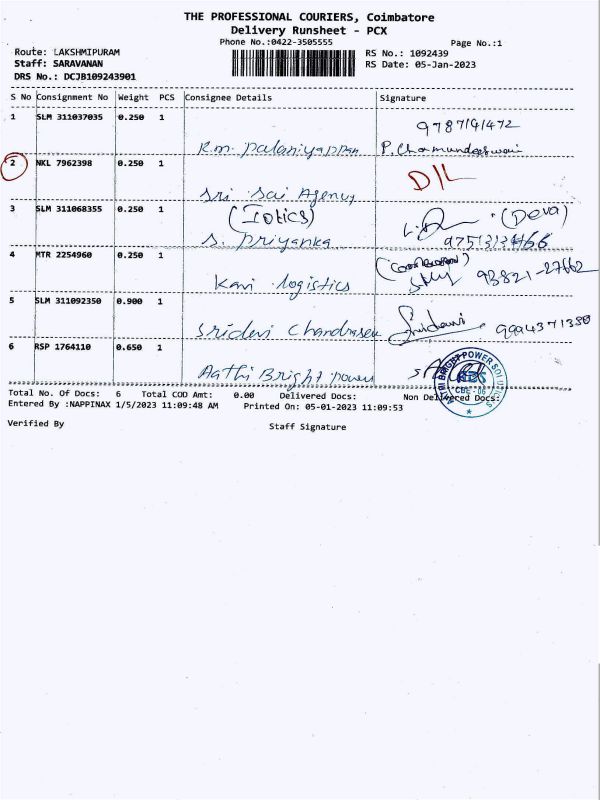 THE PROFESSIONAL COURIERS, Coimbatore
Delivery Runsheet - PCX
Phone No.:0422-3505555
Page No.:1
Route: LAKSHMIPURAM
RS No.: 1092439
Staff: SARAVANAN
RS Date: 05-Jan-2023
DRS No.: DCJB109243901
S No Consignment No Weight PCS Consignee Details Signature
1 SLM 311037035 0.250 1
R.m. Palaniyappan P. Chamundeeswari
2 NKL 7962398 0.250 1
D/L
Sri Sai Agency
3 SLM 311068355 0.250 1
(Iotics) (Deva)
S. Priyanka
4 MTR 2254960 0.250 1
Kani logistics 93821-27662
5 SLM 311092350 0.900 1
Sridevi Sridevi 9994371380
6 RSP 1764110 0.650 1
Aathi Bright power
CBE - 06
Total No. Of Docs: 6 Total COD Amt: 0.00 Delivered Docs: Non Delivered Docs:
Entered By :NAPPINAX 1/5/2023 11:09:48 AM Printed On: 05-01-2023 11:09:53
Verified By Staff Signature